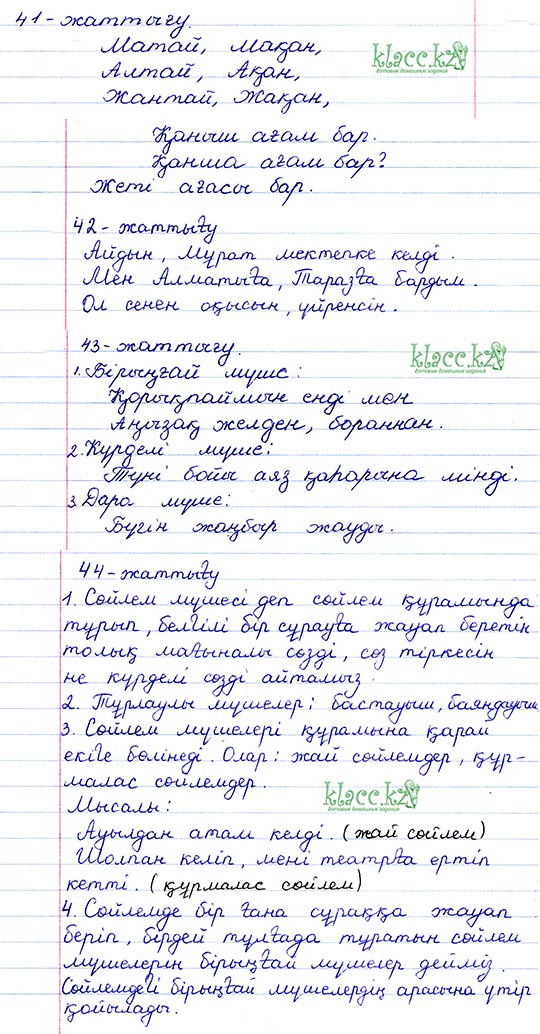 41-жаттығу.
Матай, Мақан,
klacc.kz
готовые домашние задания
Алтай, Ақан,
Жантай, Жақан,
Қаныш ағам бар.
Қанша ағам бар?
Жеті ағасы бар.
42-жаттығу
Айдын, Мұрат мектепке келді.
Мен Алматыға, Таразға бардым.
Ол сенен оқысын, үйренсін.
43-жаттығу.
klacc.kz
готовые домашние задания
1. Бірыңғай мүше:
Қорықпаймын енді мен
Аңызақ желден, бораннан.
2. Күрделі мүше:
Түні бойы аяз қаһарына мінді.
3. Дара мүше:
Бүгін жаңбыр жауды.
44-жаттығу
1. Сөйлем мүшесі деп сөйлем құрамында
тұрып, белгілі бір сұрауға жауап беретін
толық мағыналы сөзді, сөз тіркесін
не күрделі сөзді айтамыз.
2. Тұрлаулы мүшелер: бастауыш, баяндауыш
3. Сөйлем мүшелері құрамына қарай
екіге бөлінеді. Олар: жай сөйлемдер, құр-
малас сөйлемдер.
klacc.kz
готовые домашние задания
Мысалы:
Ауылдан атам келді. (жай сөйлем)
Шолпан келіп, мені театрға ертіп
кетті. (құрмалас сөйлем)
4. Сөйлемде бір ғана сұраққа жауап
беріп, бірдей тұлғада тұратын сөйлем
мүшелерін бірыңғай мүшелер дейміз.
Сөйлемдегі бірыңғай мүшелердің арасына үтір
қойылады.